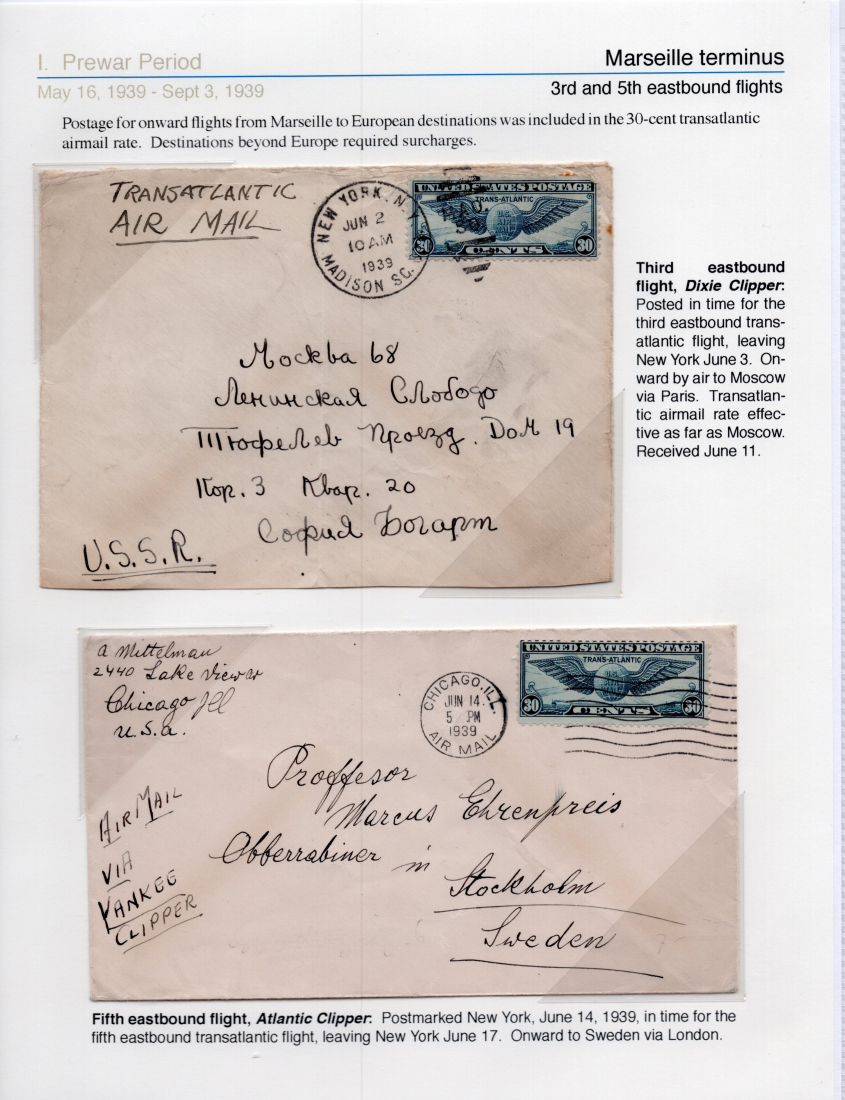 I. Prewar Period
Marseille terminus
May 16, 1939 - Sept 3, 1939
3rd and 5th eastbound flights
Postage for onward flights from Marseille to European destinations was included in the 30-cent transatlantic
airmail rate. Destinations beyond Europe required surcharges.
TRANSATLANTIC
AIR MAIL
NEW YORK, N.Y.
JUN 2
10 AM
1939
MADISON SQ.
UNITED STATES POSTAGE
TRANS-ATLANTIC
U.S.
AIR
MAIL
30 CENTS 30
Москва 68
Ленинская Слободо
Тюфелев Проезд. Дом 19
Кор. 3 Квар. 20
София Богарт
U.S.S.R.
Third eastbound
flight, Dixie Clipper:
Posted in time for the
third eastbound trans-
atlantic flight, leaving
New York June 3. On-
ward by air to Moscow
via Paris. Transatlan-
tic airmail rate effec-
tive as far as Moscow.
Received June 11.
A Mittelman
2440 Lake View
Chicago Ill
U.S.A.
CHICAGO, ILL.
JUN 14
5 PM
1939
AIR MAIL
UNITED STATES POSTAGE
TRANS-ATLANTIC
U.S.
AIR
MAIL
30 CENTS 30
Proffesor
Marcus Ehrenpreis
Obberrabiner in
Stockholm
Sweden
AIR MAIL
VIA
YANKEE
CLIPPER
Fifth eastbound flight, Atlantic Clipper: Postmarked New York, June 14, 1939, in time for the
fifth eastbound transatlantic flight, leaving New York June 17. Onward to Sweden via London.